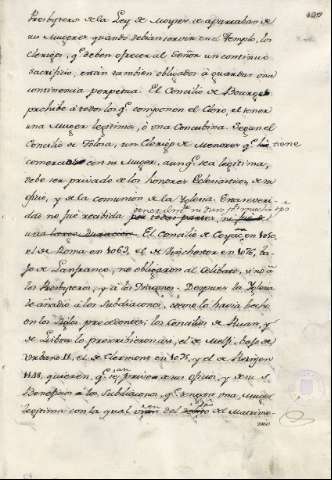 Presbyteros de la Ley de Moyses se apartaban de
sus Mugeres quando debian servir en el Templo, los
Clerigos, q.e deben ofrecer al Señor un continuo
Sacrificio, estàn tambien obligados à guardar una
continencia perpetua. El Concilio de Bourges
prohibe à todos los q.e componen el Clero, el tener
una Muger legitima, ò una Concubina. Segun el
Concilio de Tolosa, un Clerigo de Menores q.e tiene
comercio con su Muger, aunq.e sea legitima,
debe ser privado de los honores Eclesiasticos, de su
oficio, y de la comunion de la Yglesia.
das no fuè recibida
una El Concilio de en 1050,
el de Roma en 1063, el de Winchester en 1076, ba-
jo de Lanfranco, no obligaron al Celibato, sinò à
los Presbyteros, y à los Diaconos. Despues la Yglesia
le añadio à los Subdiaconos, como lo havia hecho
en los Siglos precedentes; los Concilios de Ruan, y
de lo prescribieron, el de Melfi, bajo de
Urbano II, el de Clermont en 1095, y el de
quieren, q.e se prive de sus oficios, y de sus
Beneficios à los Subdiaconos, q.e tengan una Muger
legitima con la qual del de Matrimo-
nio